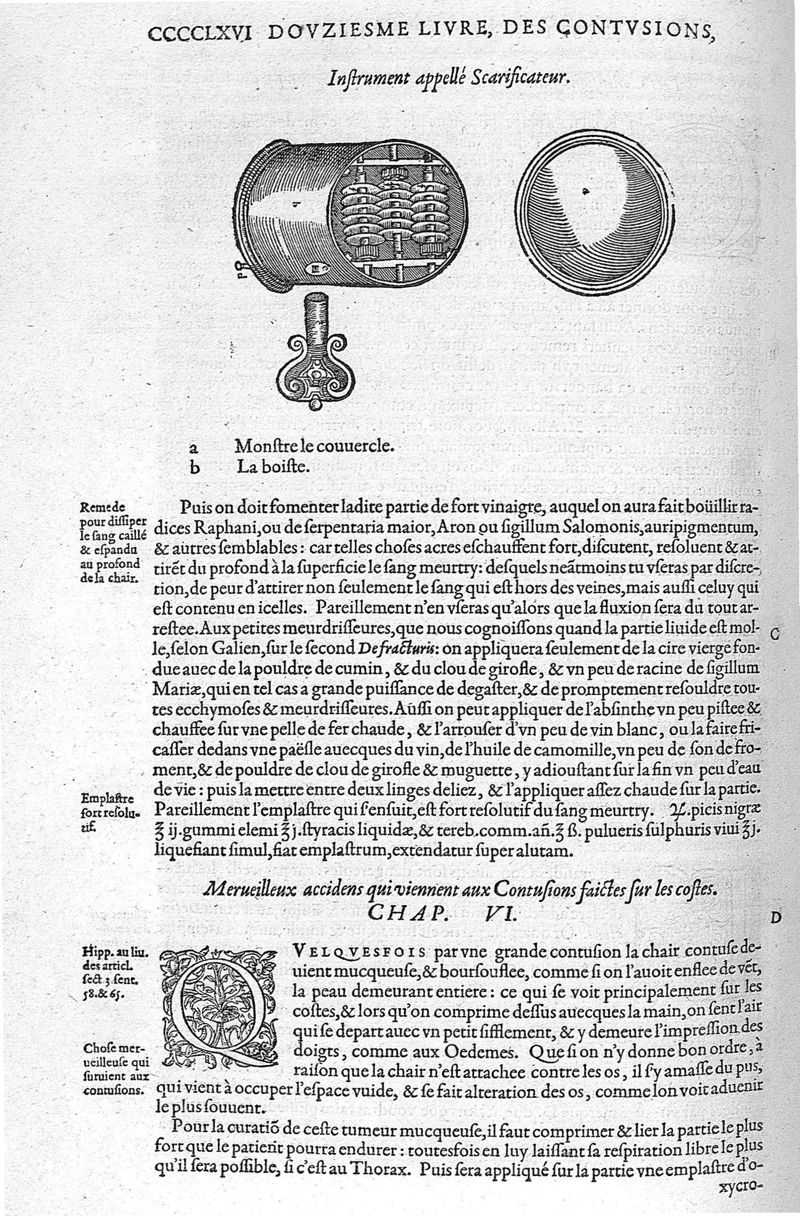 CCCCLXVI DOVZIESME LIVRE, DES CONTVSIONS,
Inſtrument appellé Scarificateur.
a Monſtre le couuercle.
b La boiſte.
Remede
pour diſſiper
le ſang caillé
& eſpandu
au profond
de la chair.
Puis on doit fomenter ladite partie de fort vinaigre, auquel on aura fait boüillir ra-
dices Raphani, ou de ſerpentaria maior, Aron ou ſigillum Salomonis, auripigmentum,
& autres ſemblables: car telles choſes acres eſchauffent fort, diſcutent, reſoluent & at-
tirẽt du profond à la ſuperficie le ſang meurtry: deſquels neãtmoins tu vſeras par diſcre-
tion, de peur d'attirer non ſeulement le ſang qui eſt hors des veines, mais auſſi celuy qui
eſt contenu en icelles. Pareillement n'en vſeras qu'alors que la fluxion ſera du tout ar-
reſtee. Aux petites meurdriſſeures, que nous cognoiſſons quand la partie liuide eſt mol-
C
le, ſelon Galien, ſur le ſecond De fracturis: on appliquera ſeulement de la cire vierge fon-
due auec de la pouldre de cumin, & du clou de girofle, & vn peu de racine de ſigillum
Mariæ, qui en tel cas a grande puiſſance de degaſter, & de promptement reſouldre tou-
tes ecchymoſes & meurdriſſeures. Auſſi on peut appliquer de l'abſinthe vn peu piſtee &
chauffee ſur vne pelle de fer chaude, & l'arrouſer d'vn peu de vin blanc, ou la faire fri-
caſſer dedans vne paëſle auecques du vin, de l'huile de camomille, vn peu de ſon de fro-
ment, & de pouldre de clou de girofle & muguette, y adiouſtant ſur la fin vn peu d'eau
de vie: puis la mettre entre deux linges deliez, & l'appliquer aſſez chaude ſur la partie.
Emplaſtre
fort reſolu-
tif.
Pareillement l'emplaſtre qui ſ'enſuit, eſt fort reſolutif du ſang meurtry. ♃. picis nigræ
℥ ij. gummi elemi ℥ j. ſtyracis liquidæ, & tereb. comm. añ. ℥ ß. pulueris ſulphuris viui ℥ j.
liquefiant ſimul, fiat emplaſtrum, extendatur ſuper alutam.
Merueilleux accidens qui viennent aux Contuſions faictes ſur les coſtes.
CHAP. VI.
D
Hipp. au liu.
des articl.
ſect 3 ſent.
58. & 65.
QVELQVESFOIS par vne grande contuſion la chair contuſe de-
uient mucqueuſe, & bourſouflee, comme ſi on l'auoit enflee de vẽt,
la peau demeurant entiere: ce qui ſe voit principalement ſur les
coſtes, & lors qu'on comprime deſſus auecques la main, on ſent l'air
qui ſe depart auec vn petit ſifflement, & y demeure l'impreſſion des
Choſe mer-
ueilleuſe qui
ſuruient aux
contuſions.
doigts, comme aux Oedemes. Que ſi on n'y donne bon ordre, à
raiſon que la chair n'eſt attachee contre les os, il ſ'y amaſſe du pus,
qui vient à occuper l'eſpace vuide, & ſe fait alteration des os, comme lon voit aduenir
le plus ſouuent.
Pour la curatiõ de ceſte tumeur mucqueuſe, il faut comprimer & lier la partie le plus
fort que le patient pourra endurer: toutesfois en luy laiſſant ſa reſpiration libre le plus
qu'il ſera poſſible, ſi c'eſt au Thorax. Puis ſera appliqué ſur la partie vne emplaſtre d'o-
xycro-